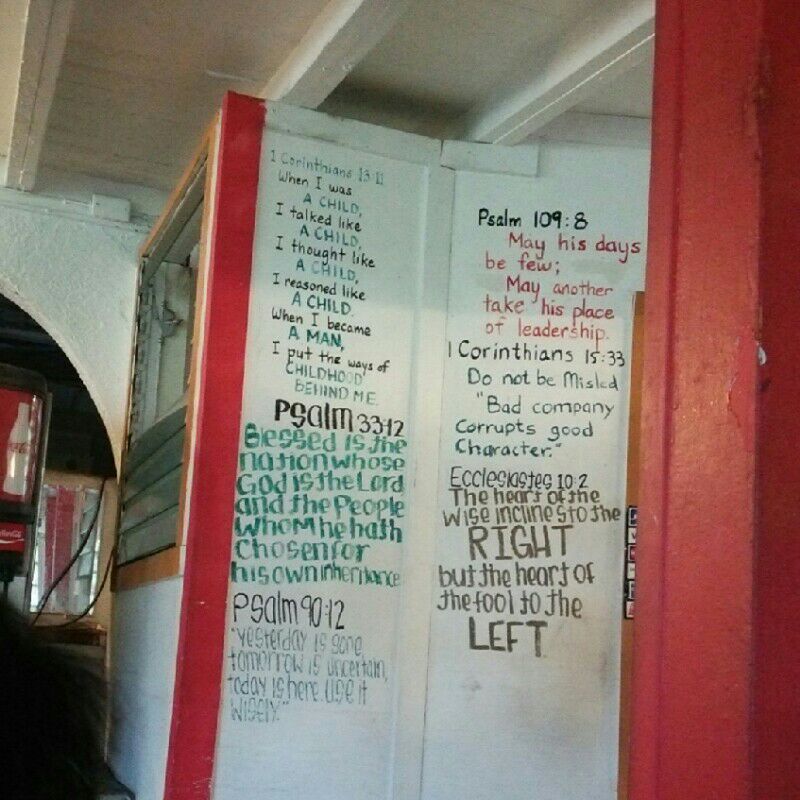 1 Corinthians 13:11
When I was
A CHILD,
I talked like
A CHILD,
I thought like
A CHILD,
I reasoned like
A CHILD.
When I became
A MAN,
I put the ways of
CHILDHOOD
BEHIND ME.
Psalm 33:12
Blessed is the
nation whose
God is the Lord
and the People
Whom he hath
Chosen for
his own inheritance
Psalm 90:12
"Yesterday is gone,
tomorrow is uncertain,
today is here. Use it
Wisely."
Psalm 109:8
May his days
be few;
May another
take his place
of leadership.
1 Corinthians 15:33
Do not be Misled
"Bad company
Corrupts good
Character."
Ecclesiastes 10:2
The heart of the
Wise inclines to the
RIGHT
but the heart of
the fool to the
LEFT